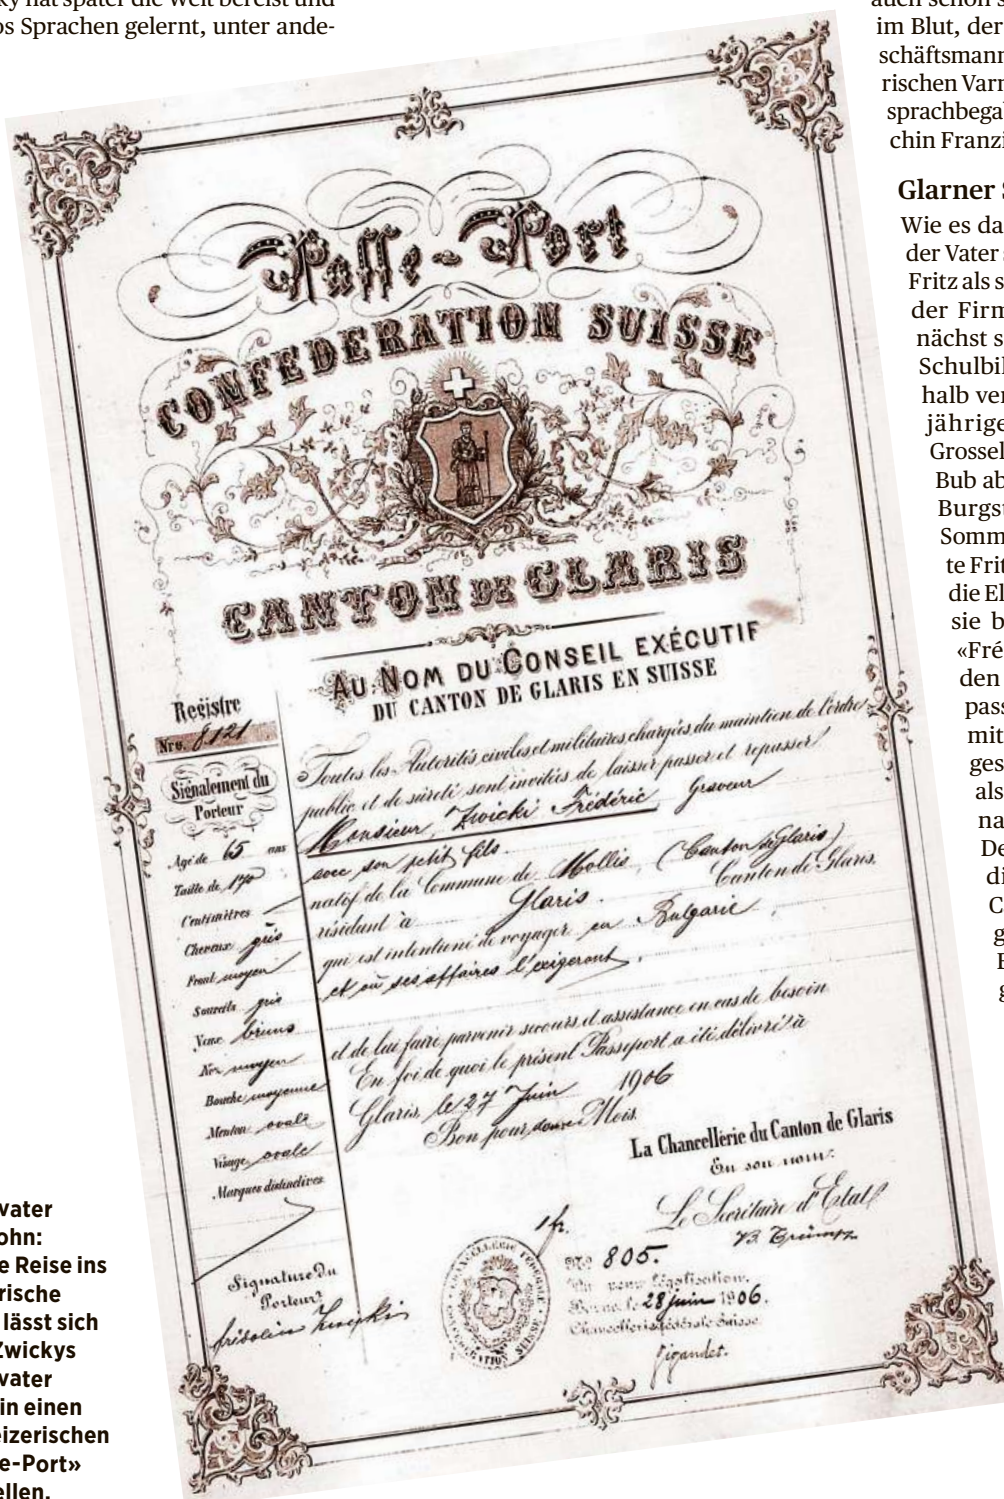 ky hat später die Welt bereist und
os Sprachen gelernt, unter ande-
Passe-Port
CONFEDERATION SUISSE
CANTON DE GLARIS
AU NOM DU CONSEIL EXÉCUTIF
DU CANTON DE GLARIS EN SUISSE
Registre
Nro. 8121
Signalement du
Porteur
Agé de 65 ans
Taille de 170
Centimètres
Cheveux gris
Front moyen
Sourcils gris
Yeux bruns
Nez moyen
Bouche moyenne
Menton ovale
Visage ovale
Marques distinctives
Signature du
Porteur
fridolin Zwicki
Toutes les Autorités civiles et militaires chargées du maintien de l'ordre
public et de sûreté sont invitées de laisser passer et repasser
Monsieur, Zwicki Frédéric, Graveur
avec son petit fils.
natif de la Commune de Mollis, (Canton de Glaris)
résidant à Glaris. Canton de Glaris,
qui est intentioné de voyager en Bulgarie,
et où ses affaires l'exigeront,
et de lui faire parvenir secours et assistance en cas de besoin
En foi de quoi le présent Passeport a été délivré à
Glaris, le 27 Juin 1906
Bon pour douze Mois.
La Chancellerie du Canton de Glaris
En son nom:
Le Secrétaire d'Etat
B. Trümpy
1 fr.
CHANCELLERIE FÉDÉRALE
CONFÉDÉRATION SUISSE
No 805.
Vu pour légalisation.
Berne, le 28 juin 1906.
Chancellerie fédérale Suisse:
Gigandet.
vater
ohn:
e Reise ins
rische
lässt sich
Zwickys
vater
in einen
eizerischen
e-Port»
ellen.
auch schon s
im Blut, der
schäftsmann
rischen Varn
sprachbega
chin Franzi
Glarner S
Wie es da
der Vater
Fritz als s
der Firm
nächst s
Schulbil
halb ver
jährige
Grossel
Bub ab
Burgst
Somm
te Frit
die El
sie b
«Fré
den
pass
mit
ges
als
na
De
di
C
g